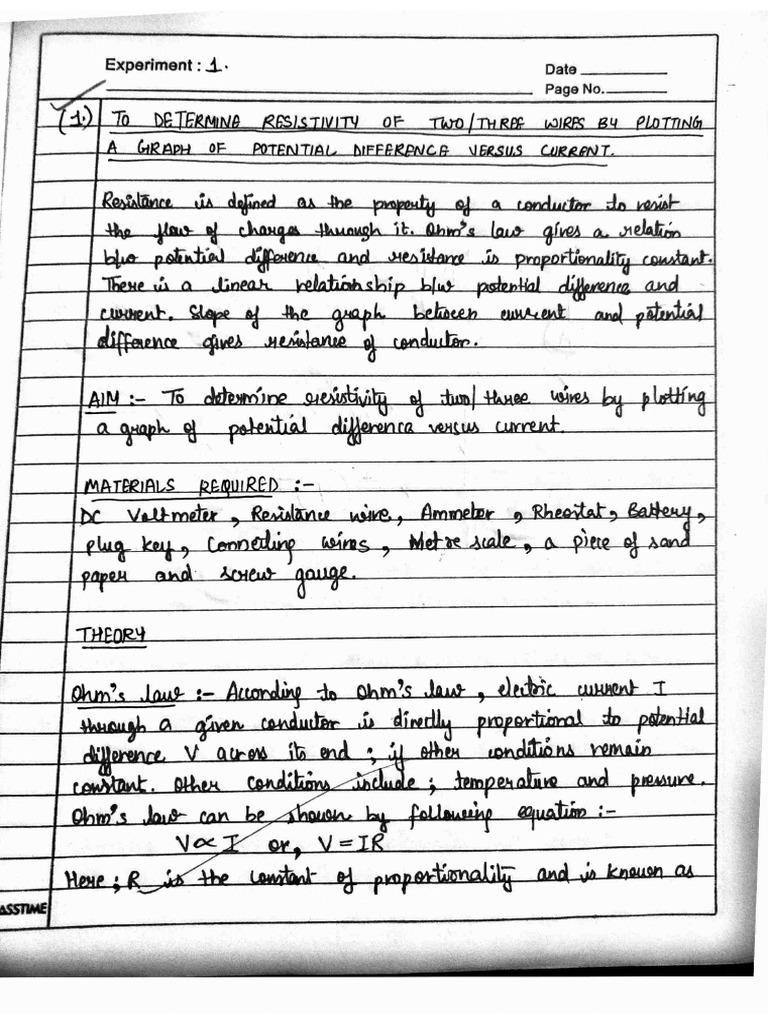 Experiment : 1.
Date
Page No.
(1.) TO DETERMINE RESISTIVITY OF TWO/THREE WIRES BY PLOTTING
A GRAPH OF POTENTIAL DIFFERENCE VERSUS CURRENT.
Resistance is defined as the property of a conductor to resist
the flow of charges through it. Ohm's law gives a relation
b/w potential difference and resistance is proportionality constant.
There is a linear relationship b/w potential difference and
current. Slope of the graph between current and potential
difference gives resistance of conductor.
AIM :- To determine resistivity of two/three wires by plotting
a graph of potential difference versus current.
MATERIALS REQUIRED :-
DC Voltmeter, Resistance wire, Ammeter, Rheostat, Battery,
Plug key, Connecting wires, Metre scale, a piece of sand
paper and screw gauge.
THEORY
Ohm's law :- According to Ohm's law, electric current I
through a given conductor is directly proportional to potential
difference V across its end ; if other conditions remain
constant. Other conditions include ; temperature and pressure.
Ohm's law can be shown by following equation :-
V∝I or, V=IR
Here ; R is the constant of proportionality and is known as
ASSTIME